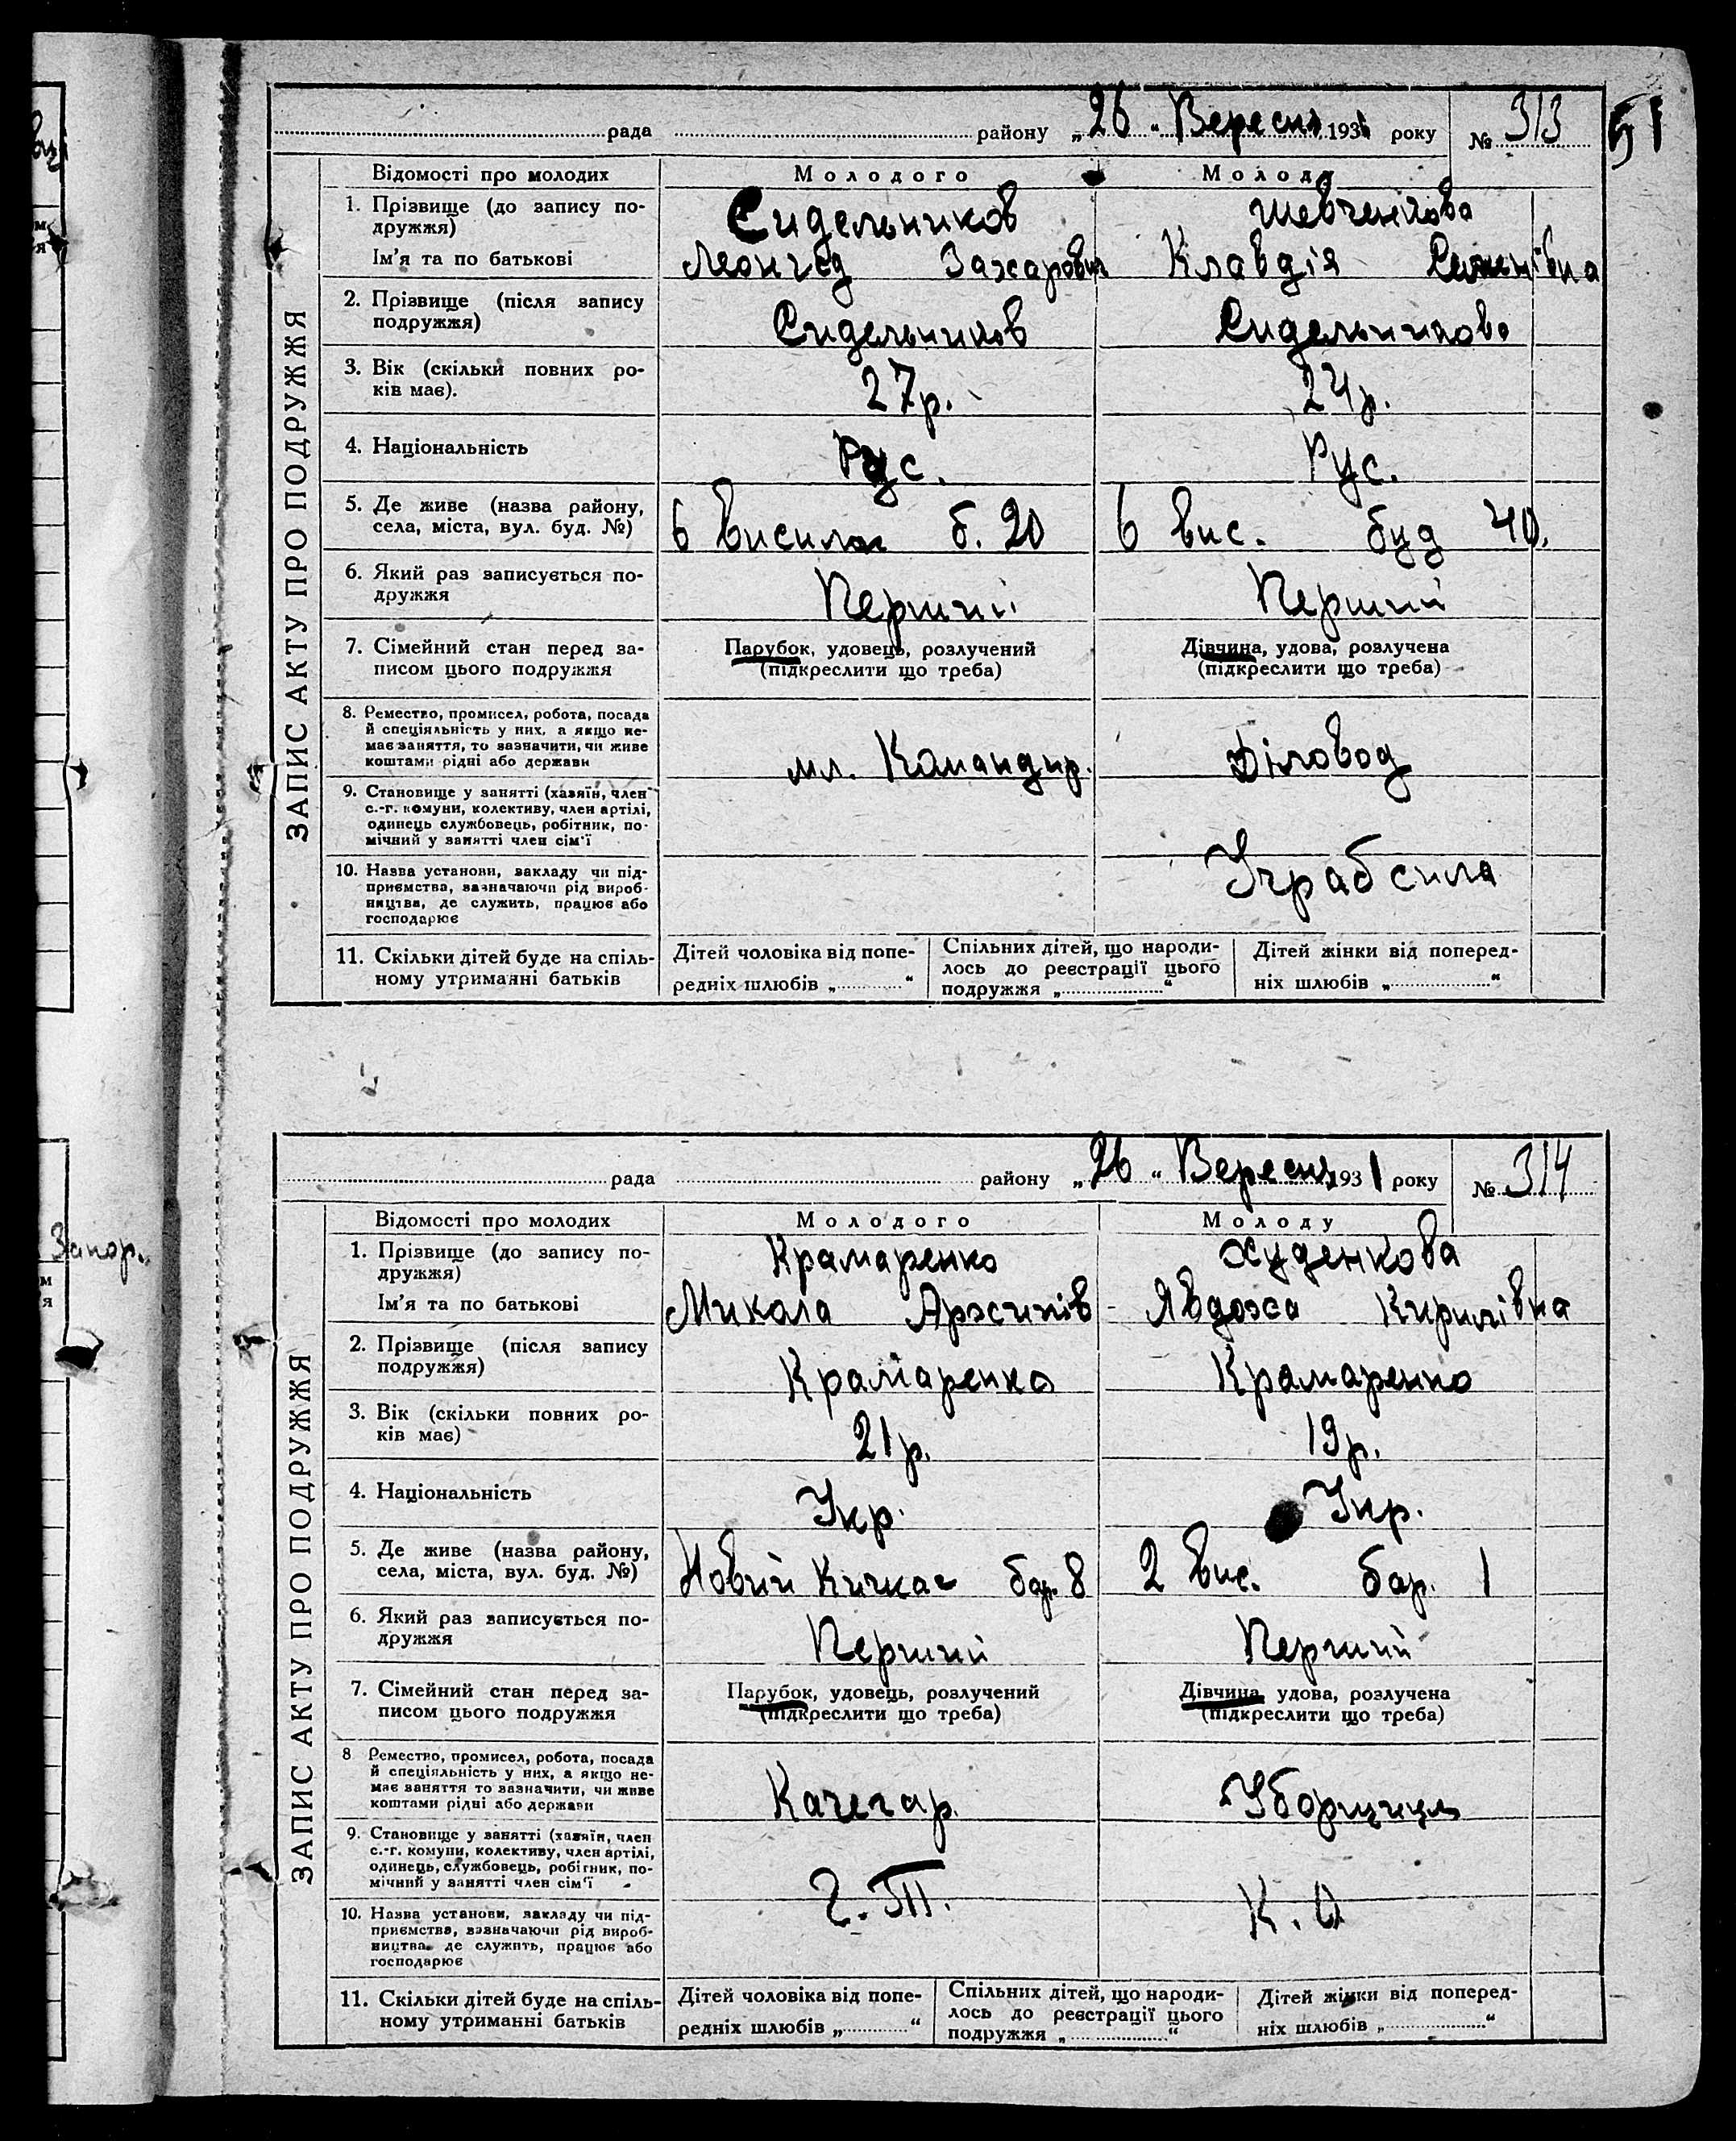 рада района „26“ Вересня 1931 року № 313
51
ЗАПИС АКТУ ПРО ПОДРУЖЖЯ
Відомості про молодих Молодого Молоду
1. Прізвище (до запису по-
дружжя) Сидельников Шевченкова
Ім'я та по батькові Леонід Захарович Клавдія Семенівна
2. Прізвище (після запису
подружжя) Сидельников Сидельникова
3. Вік (скільки повних ро-
ків має). 27р. 24р.
4. Національність Рус. Рус.
5. Де живе (назва району,
села, міста, вул. буд. №) 6 висилок б. 20 6 вис. буд 40.
6. Який раз записується по-
дружжя Перший Перший
7. Сімейний стан перед за-
писом цього подружжя
Парубок, удовець, розлучений
(підкреслити що треба)
Дівчина, удова, розлучена
(підкреслити що треба)
8. Ремество, промисел, робота, посада
й спеціяльність у них, а якщо не-
має заняття, то зазначити, чи живе
коштами рідні або держави
мл. Командир. Діловод
9. Становище у занятті (хазяїн, член
с.-г. комуни, колективу, член артілі,
одинець службовець, робітник, по-
мічний у занятті член сім'ї
10. Назва установи, закладу чи під-
приємства, зазначаючи рід вироб-
ництва, де служить, працює або
господарює
сила
11. Скільки дітей буде на спіль-
ному утриманні батьків
Дітей чоловіка від попе-
редніх шлюбів „ “
Спільних дітей, що народи-
лось до реєстрації цього
подружжя „ “
Дітей жінки від поперед-
ніх шлюбів „ “
Запор.
рада району „26“ Вересня 1931 року № 314
ЗАПИС АКТУ ПРО ПОДРУЖЖЯ
Відомості про молодих Молодого Молоду
1. Прізвище (до запису по-
дружжя) Крамаренко Худенкова
Ім'я та по батькові Микола Явдоха Кирилівна
2. Прізвище (після запису
подружжя) Крамаренко Крамаренко
3. Вік (скільки повних ро-
ків має) 21р. 19р.
4. Національність Укр. Укр.
5. Де живе (назва району,
села, міста, вул. буд. №) Новий Кичкас бар. 8 2 вис. бар. 1
6. Який раз записується по-
дружжя Перший Перший
7. Сімейний стан перед за-
писом цього подружжя
Парубок, удовець, розлучений
(підкреслити що треба)
Дівчина, удова, розлучена
(підкреслити що треба)
8 Ремество, промисел, робота, посада
й спеціяльність у них, а якщо не-
має заняття то зазначити, чи живе
коштами рідні або держави
Качегар. Уборщиця
9. Становище у занятті (хазяїн, член
с.-г. комуни, колективу, член артілі,
одинець, службовець, робітник, по-
мічний у занятті член сім'ї
10. Назва установи, закладу чи під-
приємства, зазначаючи рід вироб-
ництва, де служить, працює або
господарює
11. Скільки дітей буде на спіль-
ному утриманні батьків
Дітей чоловіка від попе-
редніх шлюбів „ “
Спільних дітей, що народи-
лось до реєстрації цього
подружжя „ “
Дітей жінки від поперед-
ніх шлюбів „ “